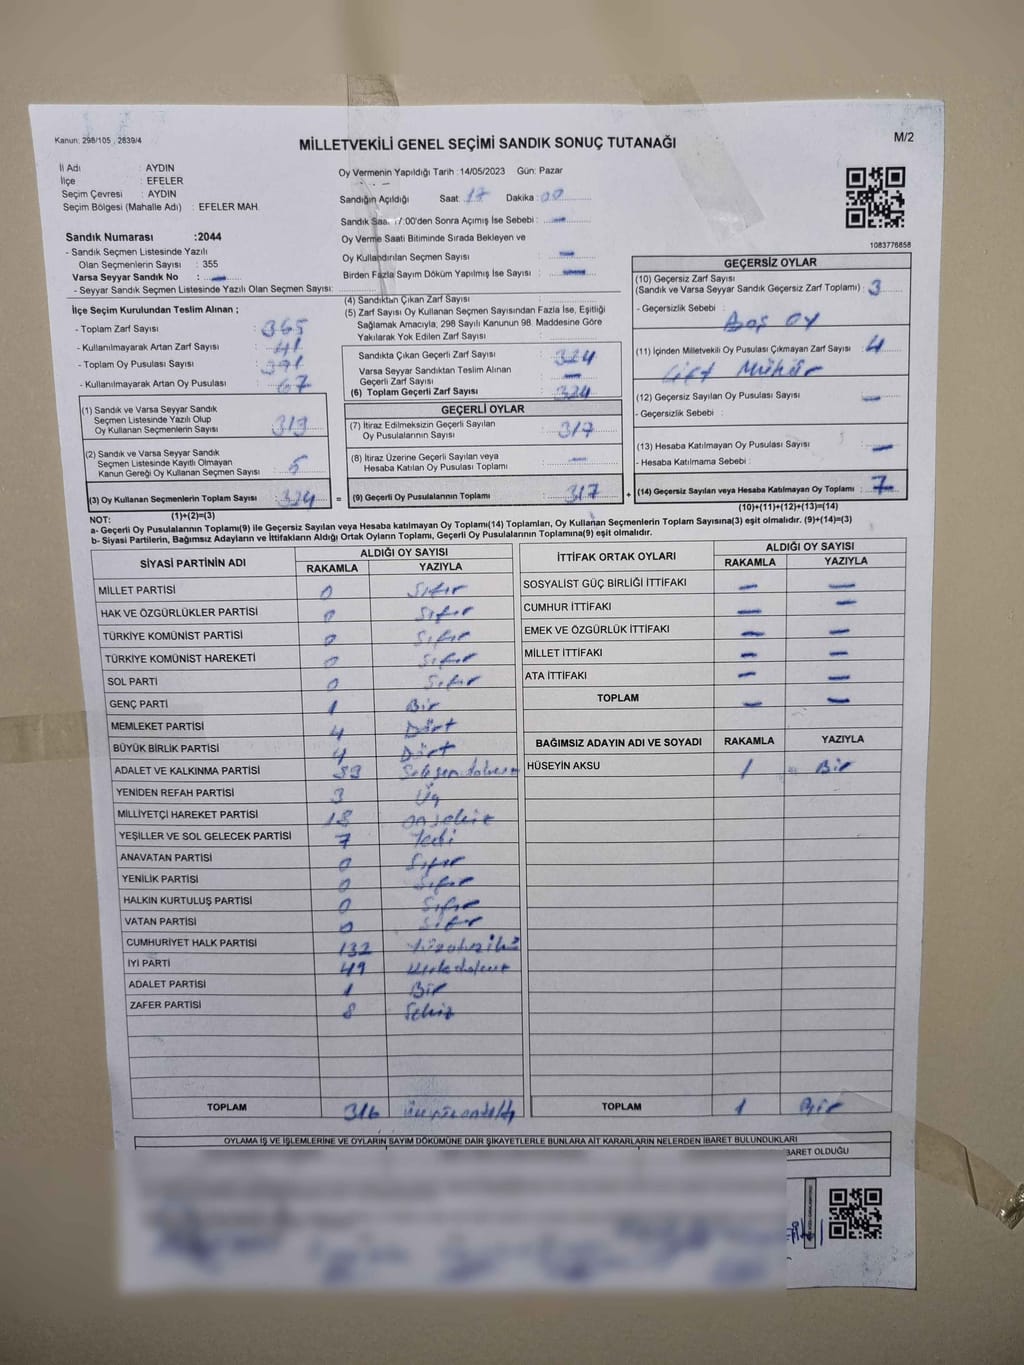 Kanun: 298/105 , 2839/4
MİLLETVEKİLİ GENEL SEÇİMİ SANDIK SONUÇ TUTANAĞI
M/2
İl Adı : AYDIN
İlçe : EFELER
Seçim Çevresi : AYDIN
Seçim Bölgesi (Mahalle Adı) : EFELER MAH.
Oy Vermenin Yapıldığı Tarih :14/05/2023 Gün: Pazar
Sandığın Açıldığı Saat : 17 Dakika : 00
Sandık Saat 17:00'den Sonra Açımış İse Sebebi : —
Oy Verme Saati Bitiminde Sırada Bekleyen ve
Oy Kullandırılan Seçmen Sayısı : —
Birden Fazla Sayım Döküm Yapılmış İse Sayısı : —
1083776858
Sandık Numarası :2044
- Sandık Seçmen Listesinde Yazılı
Olan Seçmenlerin Sayısı : 355
Varsa Seyyar Sandık No : —
- Seyyar Sandık Seçmen Listesinde Yazılı Olan Seçmen Sayısı:
İlçe Seçim Kurulundan Teslim Alınan ;
- Toplam Zarf Sayısı : 365
- Kullanılmayarak Artan Zarf Sayısı : 41
- Toplam Oy Pusulası Sayısı : 391
- Kullanılmayarak Artan Oy Pusulası : 67
(1) Sandık ve Varsa Seyyar Sandık
Seçmen Listesinde Yazılı Olup
Oy Kullanan Seçmenlerin Sayısı 319
(2) Sandık ve Varsa Seyyar Sandık
Seçmen Listesinde Kayıtlı Olmayan
Kanun Gereği Oy Kullanan Seçmen Sayısı : 5
(3) Oy Kullanan Seçmenlerin Toplam Sayısı : 324 =
(1)+(2)=(3)
(4) Sandıktan Çıkan Zarf Sayısı :
(5) Zarf Sayısı Oy Kullanan Seçmen Sayısından Fazla İse, Eşitliği
Sağlamak Amacıyla, 298 Sayılı Kanunun 98. Maddesine Göre
Yakılarak Yok Edilen Zarf Sayısı :
Sandıkta Çıkan Geçerli Zarf Sayısı : 324
Varsa Seyyar Sandıktan Teslim Alınan
Geçerli Zarf Sayısı : —
(6) Toplam Geçerli Zarf Sayısı : 324
GEÇERLİ OYLAR
(7) İtiraz Edilmeksizin Geçerli Sayılan
Oy Pusulalarının Sayısı : 317
(8) İtiraz Üzerine Geçerli Sayılan veya
Hesaba Katılan Oy Pusulası Toplamı : —
(9) Geçerli Oy Pusulalarının Toplamı : 317 +
GEÇERSİZ OYLAR
(10) Geçersiz Zarf Sayısı
(Sandık ve Varsa Seyyar Sandık Geçersiz Zarf Toplamı) : 3
- Geçersizlik Sebebi : Boş oy
(11) İçinden Milletvekili Oy Pusulası Çıkmayan Zarf Sayısı : 4
Çift Mühür
(12) Geçersiz Sayılan Oy Pusulası Sayısı : —
- Geçersizlik Sebebi :
(13) Hesaba Katılmayan Oy Pusulası Sayısı : —
- Hesaba Katılmama Sebebi :
(14) Geçersiz Sayılan veya Hesaba Katılmayan Oy Toplamı : 7
(10)+(11)+(12)+(13)=(14)
NOT:
a- Geçerli Oy Pusulalarının Toplamı(9) ile Geçersiz Sayılan veya Hesaba katılmayan Oy Toplamı(14) Toplamları, Oy Kullanan Seçmenlerin Toplam Sayısına(3) eşit olmalıdır. (9)+(14)=(3)
b- Siyasi Partilerin, Bağımsız Adayların ve İttifakların Aldığı Ortak Oyların Toplamı, Geçerli Oy Pusulalarının Toplamına(9) eşit olmalıdır.
SİYASİ PARTİNİN ADI ALDIĞI OY SAYISI
RAKAMLA YAZIYLA
MİLLET PARTİSİ 0 Sıfır
HAK VE ÖZGÜRLÜKLER PARTİSİ 0 Sıfır
TÜRKİYE KOMÜNİST PARTİSİ 0 Sıfır
TÜRKİYE KOMÜNİST HAREKETİ 0 Sıfır
SOL PARTİ 0 Sıfır
GENÇ PARTİ 1 Bir
MEMLEKET PARTİSİ 4 Dört
BÜYÜK BİRLİK PARTİSİ 4 Dört
ADALET VE KALKINMA PARTİSİ
YENİDEN REFAH PARTİSİ 3 Üç
MİLLİYETÇİ HAREKET PARTİSİ 18 onsekiz
YEŞİLLER VE SOL GELECEK PARTİSİ 7 Yedi
ANAVATAN PARTİSİ 0 Sıfır
YENİLİK PARTİSİ 0 Sıfır
HALKIN KURTULUŞ PARTİSİ 0 Sıfır
VATAN PARTİSİ 0 Sıfır
CUMHURİYET HALK PARTİSİ 132 Yüzotuziki
İYİ PARTİ 49 Kırkdokuz
ADALET PARTİSİ 1 Bir
ZAFER PARTİSİ 8 Sekiz
TOPLAM 316
İTTİFAK ORTAK OYLARI ALDIĞI OY SAYISI
RAKAMLA YAZIYLA
SOSYALİST GÜÇ BİRLİĞİ İTTİFAKI — —
CUMHUR İTTİFAKI — —
EMEK VE ÖZGÜRLÜK İTTİFAKI — —
MİLLET İTTİFAKI — —
ATA İTTİFAKI — —
TOPLAM — —
BAĞIMSIZ ADAYIN ADI VE SOYADI RAKAMLA YAZIYLA
HÜSEYİN AKSU 1 Bir
TOPLAM 1 Bir
OYLAMA İŞ VE İŞLEMLERİNE VE OYLARIN SAYIM DÖKÜMÜNE DAİR ŞİKAYETLERLE BUNLARA AİT KARARLARIN NELERDEN İBARET BULUNDUKLARI
BARET OLDUĞU